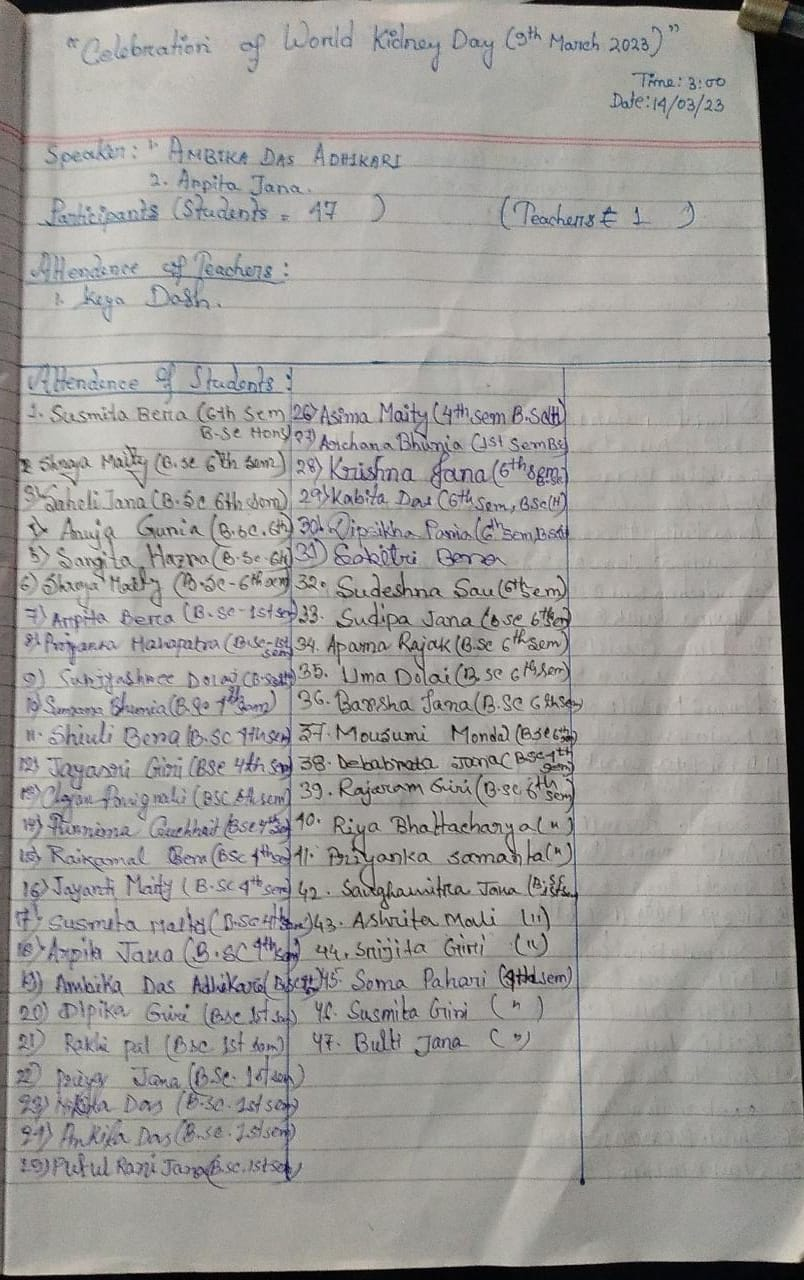 "Celebration of World Kidney Day (9th March 2023)"
Time: 3:00
Date: 14/03/23
Speaker: 1. AMBIKA DAS ADHIKARI
2. Arpita Jana.
Participants (Students = 47 )
(Teachers = 1 )
Attendence of Teachers:
1. Keya Dash.
Attendence of Students:
1. Susmita Bera (6th Sem
B.Sc Hons)
2. Shreya Maity (B.Sc 6th Sem)
3) Saheli Jana (B.Sc 6th Sem)
4) Anuja Gunia (B.Sc. 6th)
5) Sangita Hazra (B.Sc 6th)
6) Shreya Maity (B.Sc-6th sem)
7) Arpita Bera (B.Sc-1st sem)
8) Priyanka Mahapatra (B.Sc-1st
sem)
9) Dolai (B.Sc
10) Bhunia (B.Sc
11. Shiuli Bera (B.Sc 4th sem)
12) Jayasri Giri (BSc 4th sem)
13) (BSC 6th sem)
14) Purnima Guchhait (BSc 4th
15) Raikamal Bera (BSc 4th sem)
16) Jayanti Maity (B.SC 4th sem)
17) Susmita Maity (B.Sc 4th sem)
18) Arpita Jana (B.SC 4th sem)
19) Ambika Das Adhikari
20) Dipika Giri (BSc 1st sem)
21) Rakhi pal (Bsc. 1st sem)
22) Priya Jana (B.Sc. 1st sem)
23) Das (B.sc. 1st sem)
24) Ankita Das (B.sc. 1st sem)
25) Putul Rani Jana (B.sc. 1st sem)
26) Asima Maity (4th sem B.Sc(H)
27) Archana Bhunia (1st Sem BSc
28) Krishna Jana (6th sem
29) Kabita Das (6th Sem, BSc(H)
30. Dipsikha Paria (6th sem,
31) Sabitri Bera
32. Sudeshna Sau (6th Sem)
33. Sudipa Jana (B.Sc 6th sem)
34. Aparna Rajak (B.Sc 6th sem)
35. Uma Dolai (B.Sc 6th sem)
36. Barsha Jana (B.SC 6th sem)
37. Mousumi Mondal (BSc 6th
38. Debabrata Jana (BSc 4th
sem)
39. Rajaram Giri (B.Sc. 6th
sem)
40. Riya Bhattacharya (")
41. Priyanka Samanta (")
42. Sanghamitra Jana
43. Ashrita Mali (")
44. Srijita Giri (")
45. Soma Pahari (4th sem)
46. Susmita Giri (")
47. Bulti Jana (")